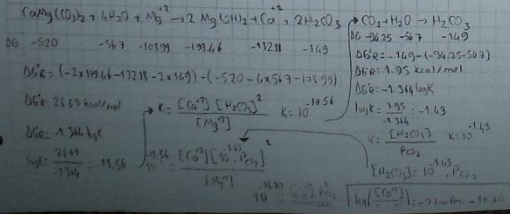 CaMg(CO3)2 + 4H2O + Mg+2 → 2 Mg(OH)2 + Ca+2 + 2H2CO3
DG -520 -567 -108.99 -199.46 -132.18 -149
DG°R = (-2x199.46-132.18-2x149)-(-520-4x567-108.99)
DG°R = 26.69 kcal/mol
DG°R = -1.364 log K
log K = 26.69 / -1.364 = -19.56
K = [Ca+2][H2CO3]2 / [Mg+2] K = 10-19.56
10-19.56 = [Ca+2][10-1.43 · PCO2]2 / [Mg+2]
CO2 + H2O → H2CO3
DG -94.25 -567 -149
DG°R = -149-(-94.25-567)
DG°R = 1.95 kcal/mol
DG°R = -1.364 log K
log K = 1.95 / -1.364 = -1.43
K = [H2CO3] / PCO2 K = 10-1.43
[H2CO3] = 10-1.43 · PCO2